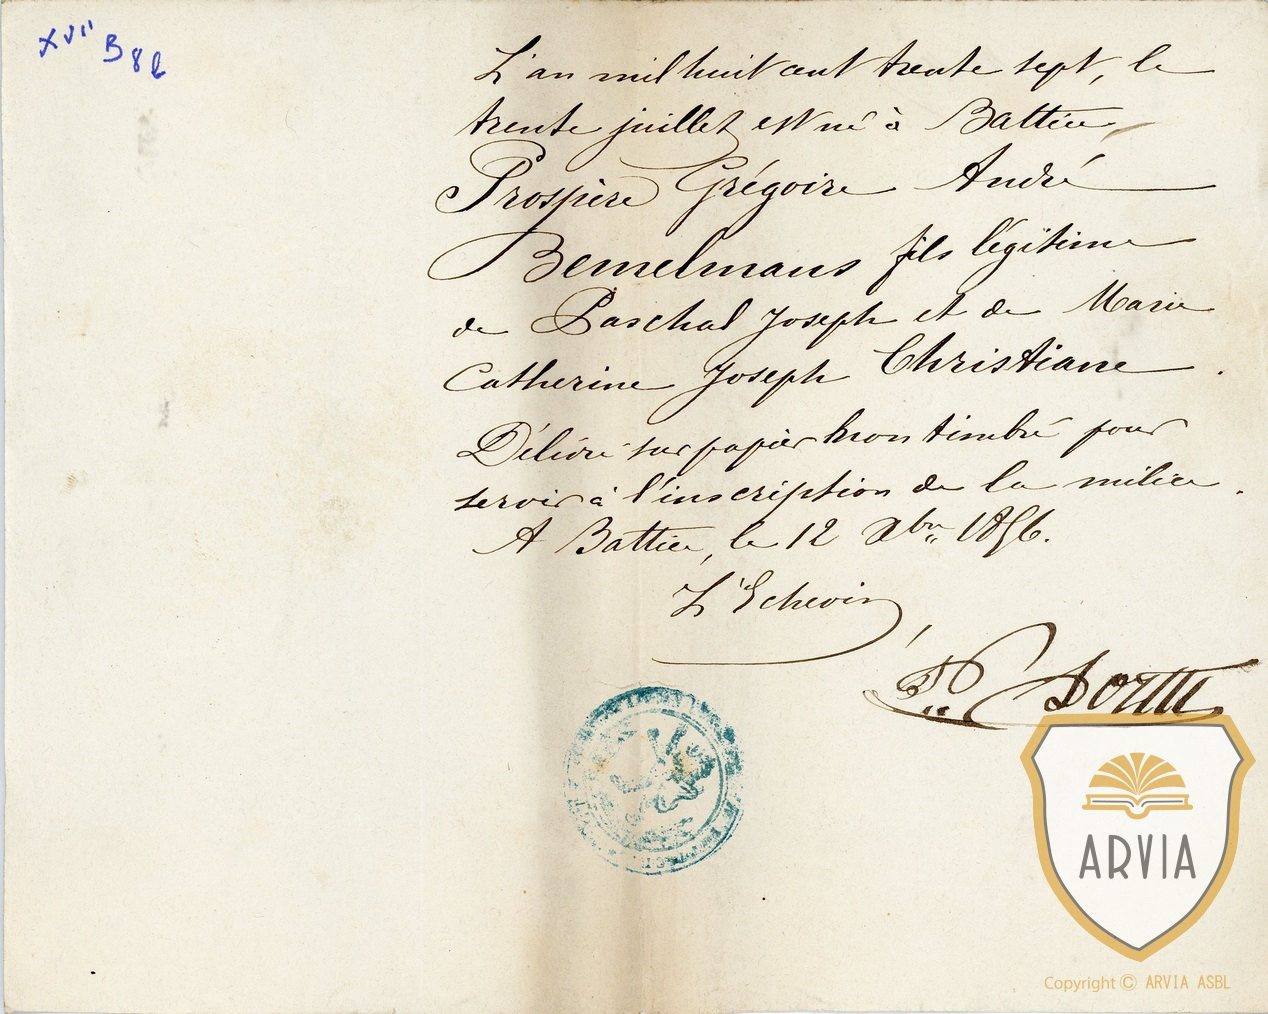 XVII B 8 b
L'an mil huit cent trente sept, le
trente juillet est né à Battice,
Prospère Grégoire André
Bemelmans fils légitime
de Paschal Joseph et de Marie
Catherine Joseph Christiane.
Délivré sur papier non timbré pour
servir à l'inscription de la milice.
A Battice, le 12 Xbre 1856.
L'Echevin
ARVIA
Copyright © ARVIA ASBL